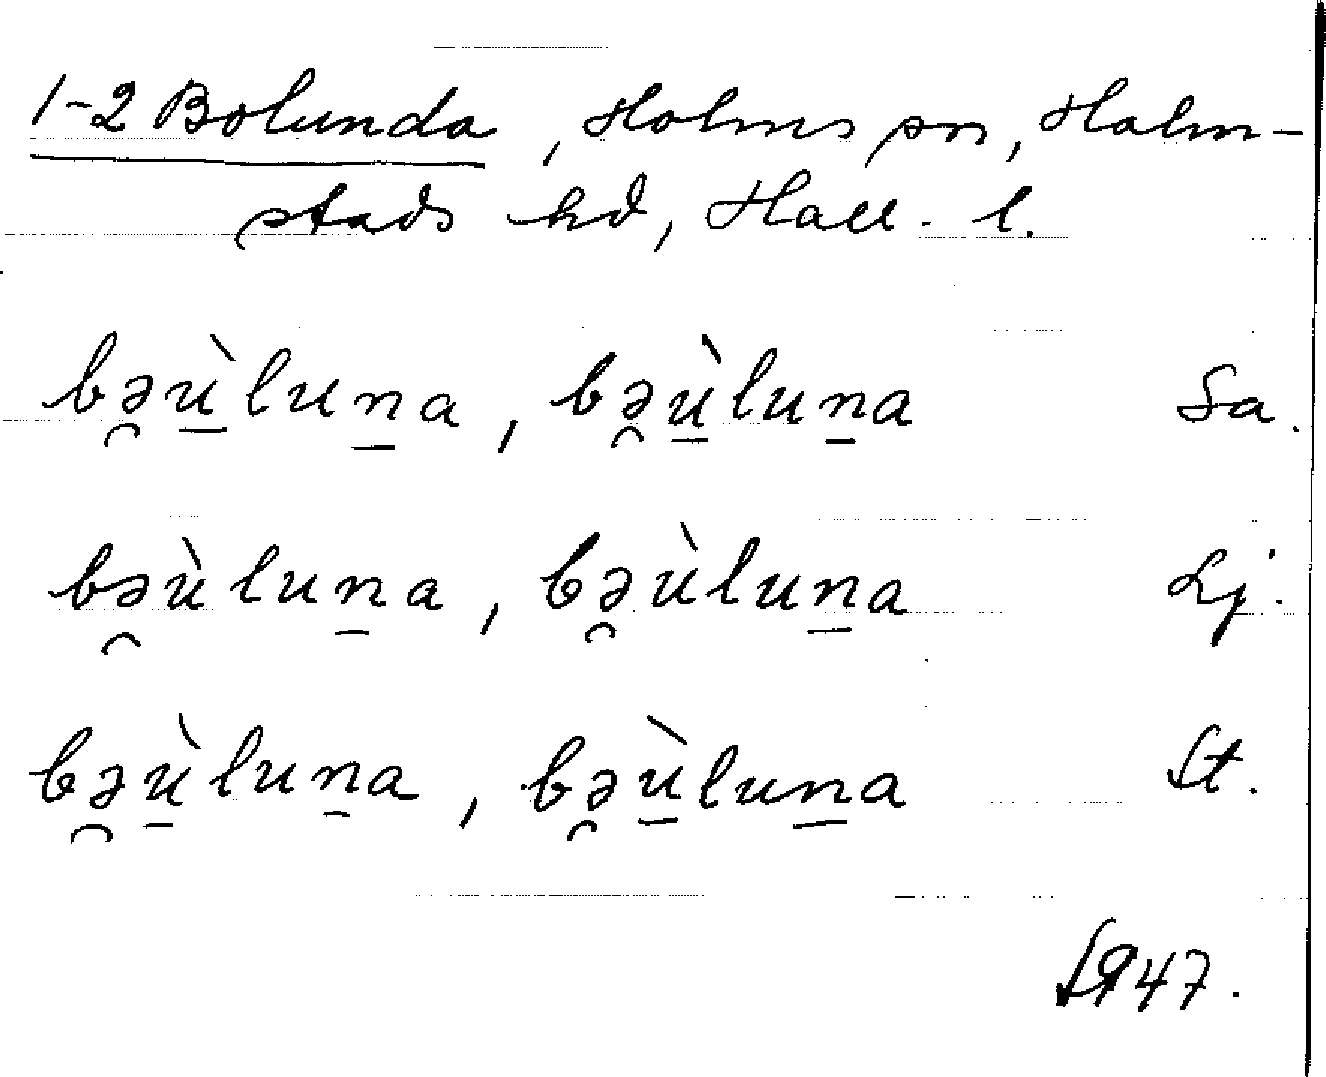 1-2 Bolunda, Holms sn, Halm-
stads hd, Hall. l.
bə̯ṳ̀luṉa, bə̯ù̱luṉa Sa.
bə̯ùluṉa, bə̯ùluṉa Lj.
bə̯ù̱luṉa, bə̯ù̱luṉa St.
1947.